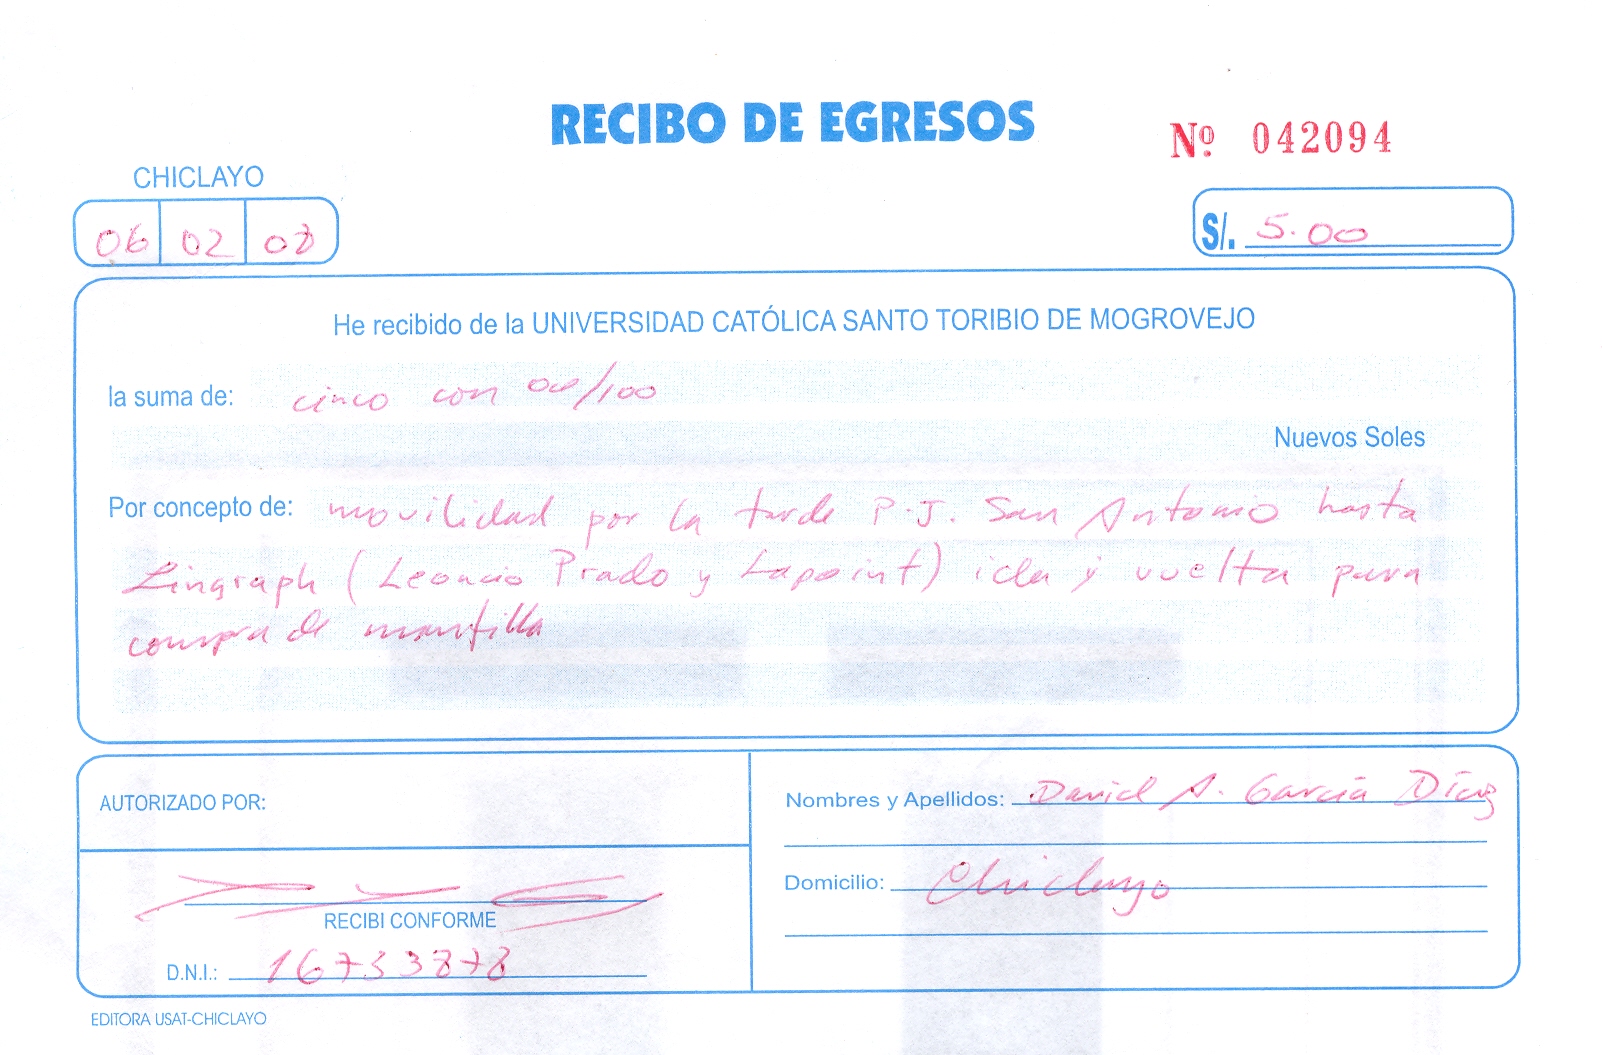 RECIBO DE EGRESOS
Nº 042094
CHICLAYO
06 02 08
S/. 5.00
He recibido de la UNIVERSIDAD CATÓLICA SANTO TORIBIO DE MOGROVEJO
la suma de: cinco con 00/100
Nuevos Soles
Por concepto de: movilidad por la tarde P.J. San Antonio hasta
Lingraph (Leoncio Prado y Lapoint) ida y vuelta para
compra de
AUTORIZADO POR:
Nombres y Apellidos: David A. García Díaz
Domicilio: Chiclayo
RECIBI CONFORME
D.N.I.: 16733878
EDITORA USAT-CHICLAYO